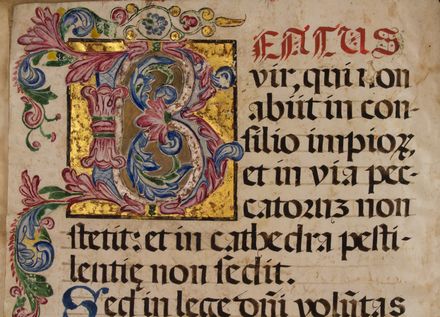 BEATUS
vir, qui non
abiit in con-
silio impioꝝ,
et in via pec-
catorum non
stetit: et in cathedra pesti-
lentię non sedit.
Sed in lege dñi volũtas